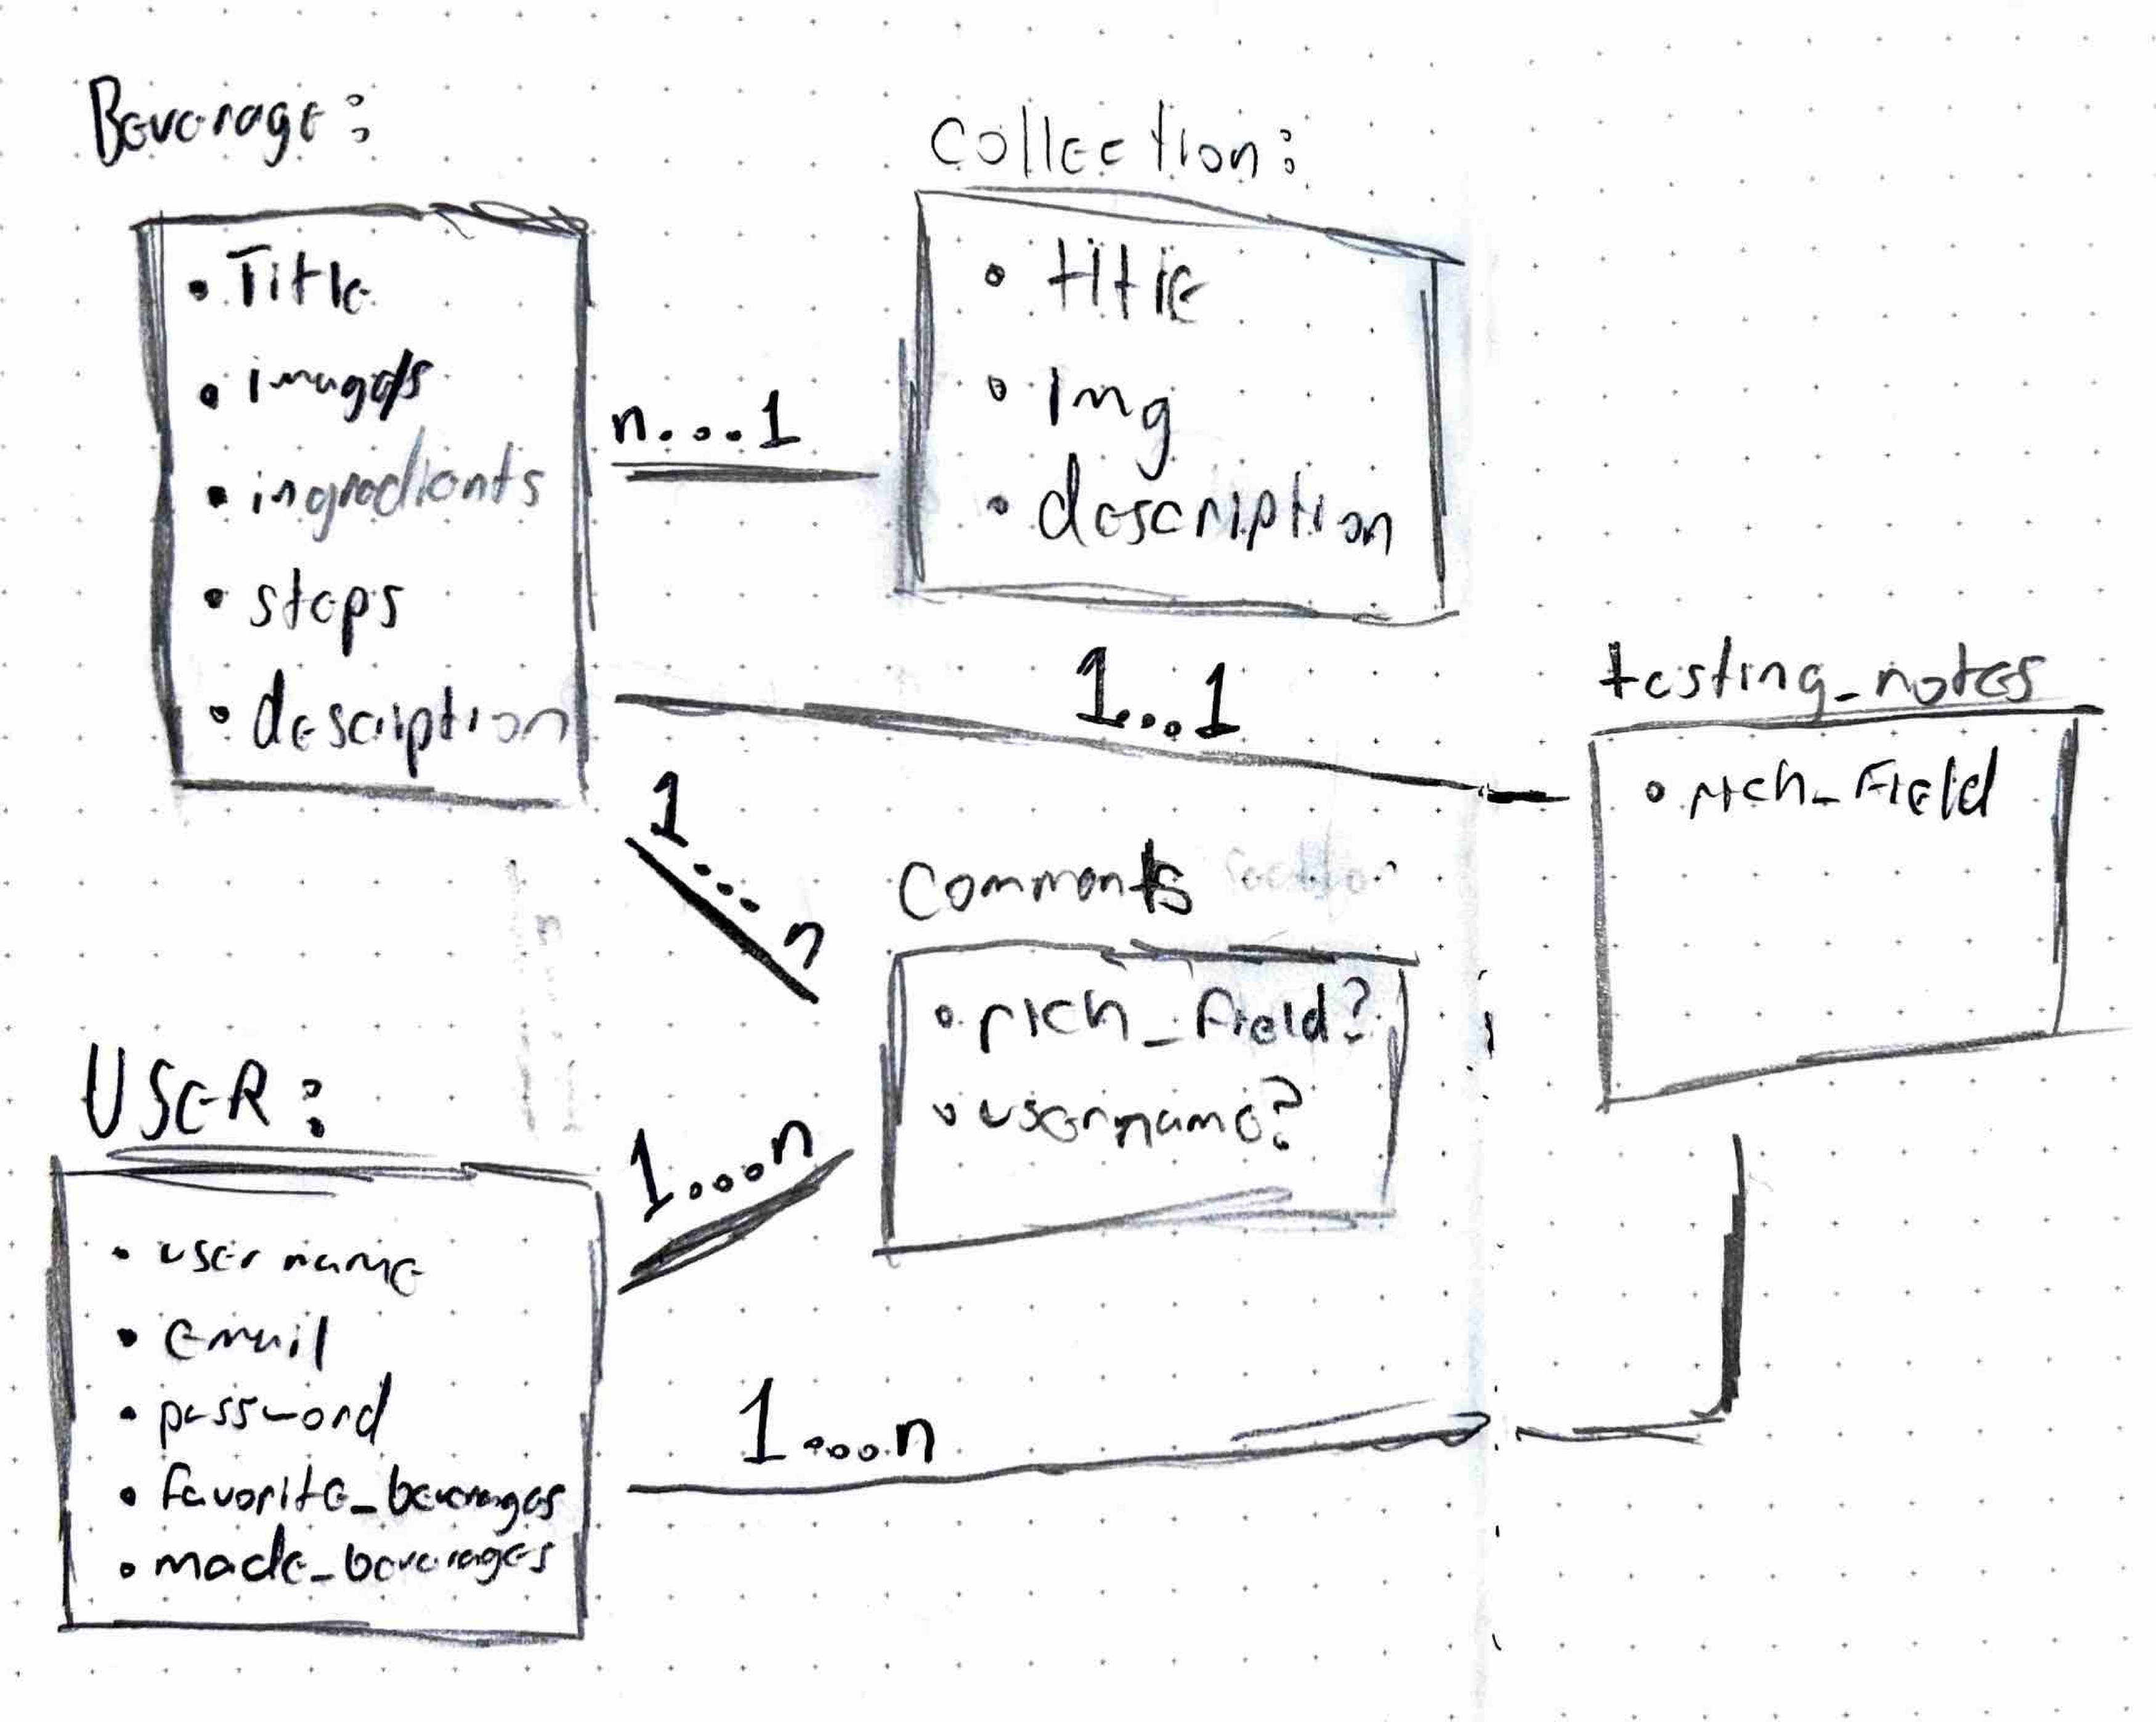 Beverage:
• Title
• images
• ingredients
• steps
• description
n...1
Collection:
• title
• Img
• description
1...1
testing_notes
• rich_field
1...n
Comments
• rich_field?
• username?
USER:
• username
• email
• password
• favorite_beverages
• made_beverages
1...n
1...n